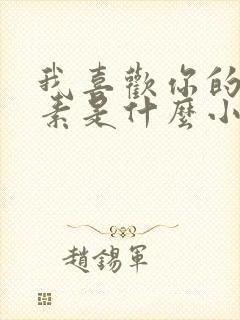 我喜歡你的
素是什麼小
趙錫軍